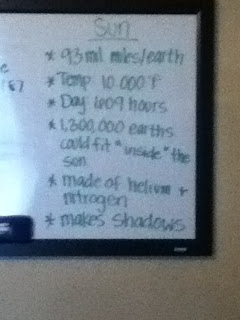 Sun
* 93 mil miles/earth
* Temp 10,000 F
* Day 609 hours
* 1,300,000 earths
could fit "inside" the
sun
* made of helium +
nitrogen
* makes shadows